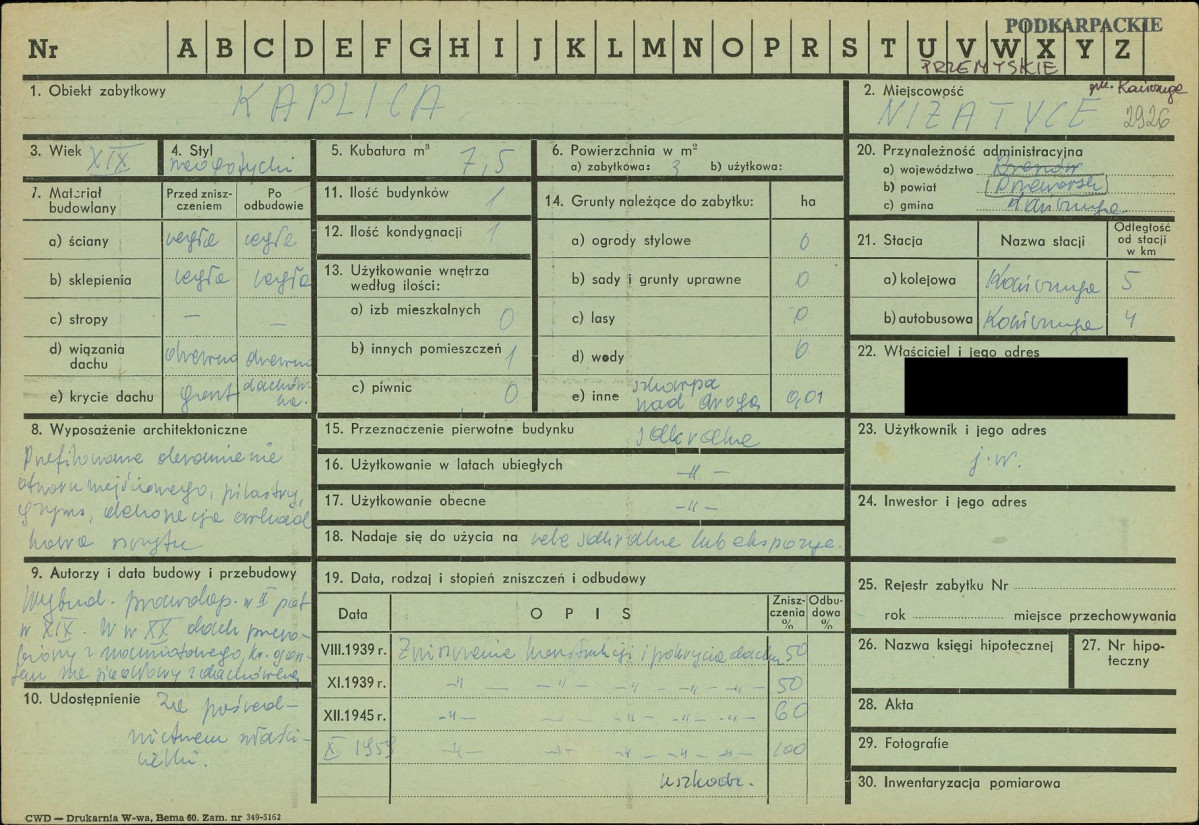 PODKARPACKIE
Nr A B C D E F G H I J K L M N O P R S T U V W X Y Z
PRZEMYSKIE
1. Obiekt zabytkowy KAPLICA
2. Miejscowość gm. Kańczuga
NIZATYCE 2926
3. Wiek XIX
4. Styl neogotycki
5. Kubatura m³ 7,5
6. Powierzchnia w m²
a) zabytkowa: 3 b) użytkowa:
20. Przynależność administracyjna
a) województwo Rzeszów
b) powiat Przeworsk
c) gmina Kańczuga
7. Materiał budowlany
Przed zniszczeniem
Po odbudowie
a) ściany cegła cegła
b) sklepienia cegła cegła
c) stropy — —
d) wiązania dachu drewno drewno
e) krycie dachu gont dachówka.
11. Ilość budynków 1
12. Ilość kondygnacji 1
13. Użytkowanie wnętrza według ilości:
a) izb mieszkalnych 0
b) innych pomieszczeń 1
c) piwnic 0
14. Grunty należące do zabytku: ha
a) ogrody stylowe 0
b) sady i grunty uprawne 0
c) lasy 0
d) wody 0
e) inne skarpa nad drogą 0,01
21. Stacja Nazwa stacji Odległość od stacji w km
a) kolejowa Kańczuga 5
b) autobusowa Kańczuga 4
22. Właściciel i jego adres
8. Wyposażenie architektoniczne
Profilowane obramienie
otworu wejściowego, pilastry,
gzyms, dekoracja arkad
kowa szczytu
15. Przeznaczenie pierwotne budynku sakralne
16. Użytkowanie w latach ubiegłych —"—
17. Użytkowanie obecne —"—
18. Nadaje się do użycia na cele sakralne lub ekspozyc.
23. Użytkownik i jego adres
j.w.
24. Inwestor i jego adres
9. Autorzy i data budowy i przebudowy
Wybud. prawdop. w II poł
w XIX. W w XX dach przero-
biony z namiotowego, kr. gon-
tem na siodłowy z dachówką
10. Udostępnienie Za pośred-
nictwem właści-
cielki.
19. Data, rodzaj i stopień zniszczeń i odbudowy
Data OPIS Zniszczenia % Odbudowa %
VIII.1939 r. Zniszczenie konstrukcji i pokrycia dachu 50
XI.1939 r. —"— —"— —"— —"— —"— 50
XII.1945 r. —"— —"— —"— —"— —"— 60
X 1959 —"— —"— —"— —"— —"— 100
uszkodz.
25. Rejestr zabytku Nr
rok miejsce przechowywania
26. Nazwa księgi hipotecznej
27. Nr hipoteczny
28. Akta
29. Fotografie
30. Inwentaryzacja pomiarowa
CWD — Drukarnia W-wa, Bema 60. Zam. nr 349-5162